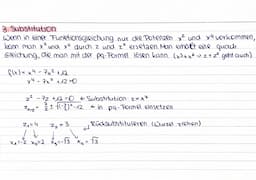 3. Substitution
Wenn in einer Funktionsgleichung nur die Potenzen x⁴ und x² vorkommen,
kann man x² und x⁴ durch z und z² ersetzen. Man erhält eine quadr.
Gleichung, die man mit der pq-Formel lösen kann. (x⁶ + x³ → z = x³ geht auch)
f(x) = x⁴ - 7x² + 12
x⁴ - 7x² + 12 = 0
z² - 7z + 12 = 0 ← Substitution z = x²
← in pq-Formel einsetzen
z₁ = 4 z₂ = 3 Rücksubstituieren (Wurzel ziehen)
x₁ = -2 x₂ = 2 x₃ = -√3 x₄ = √3